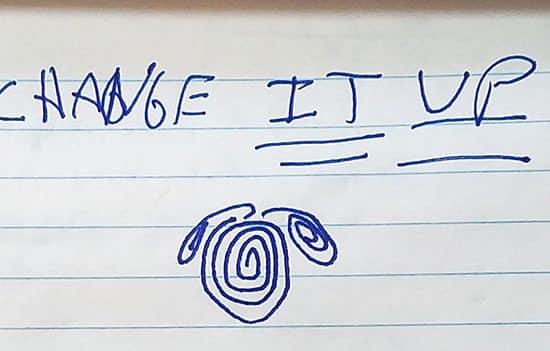 CHANGE IT UP